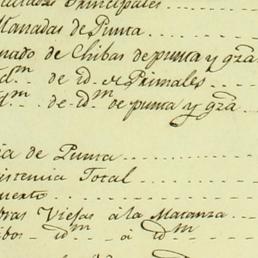 Principales
Manadas de Punta
nado de Chibas de punta y gra
id.m de id. de Primales
d.m de id.m de punta y gra
ia de Punta
istencia Total
uerto
bras Viejas á la Matanza
ibos id.m á id.m